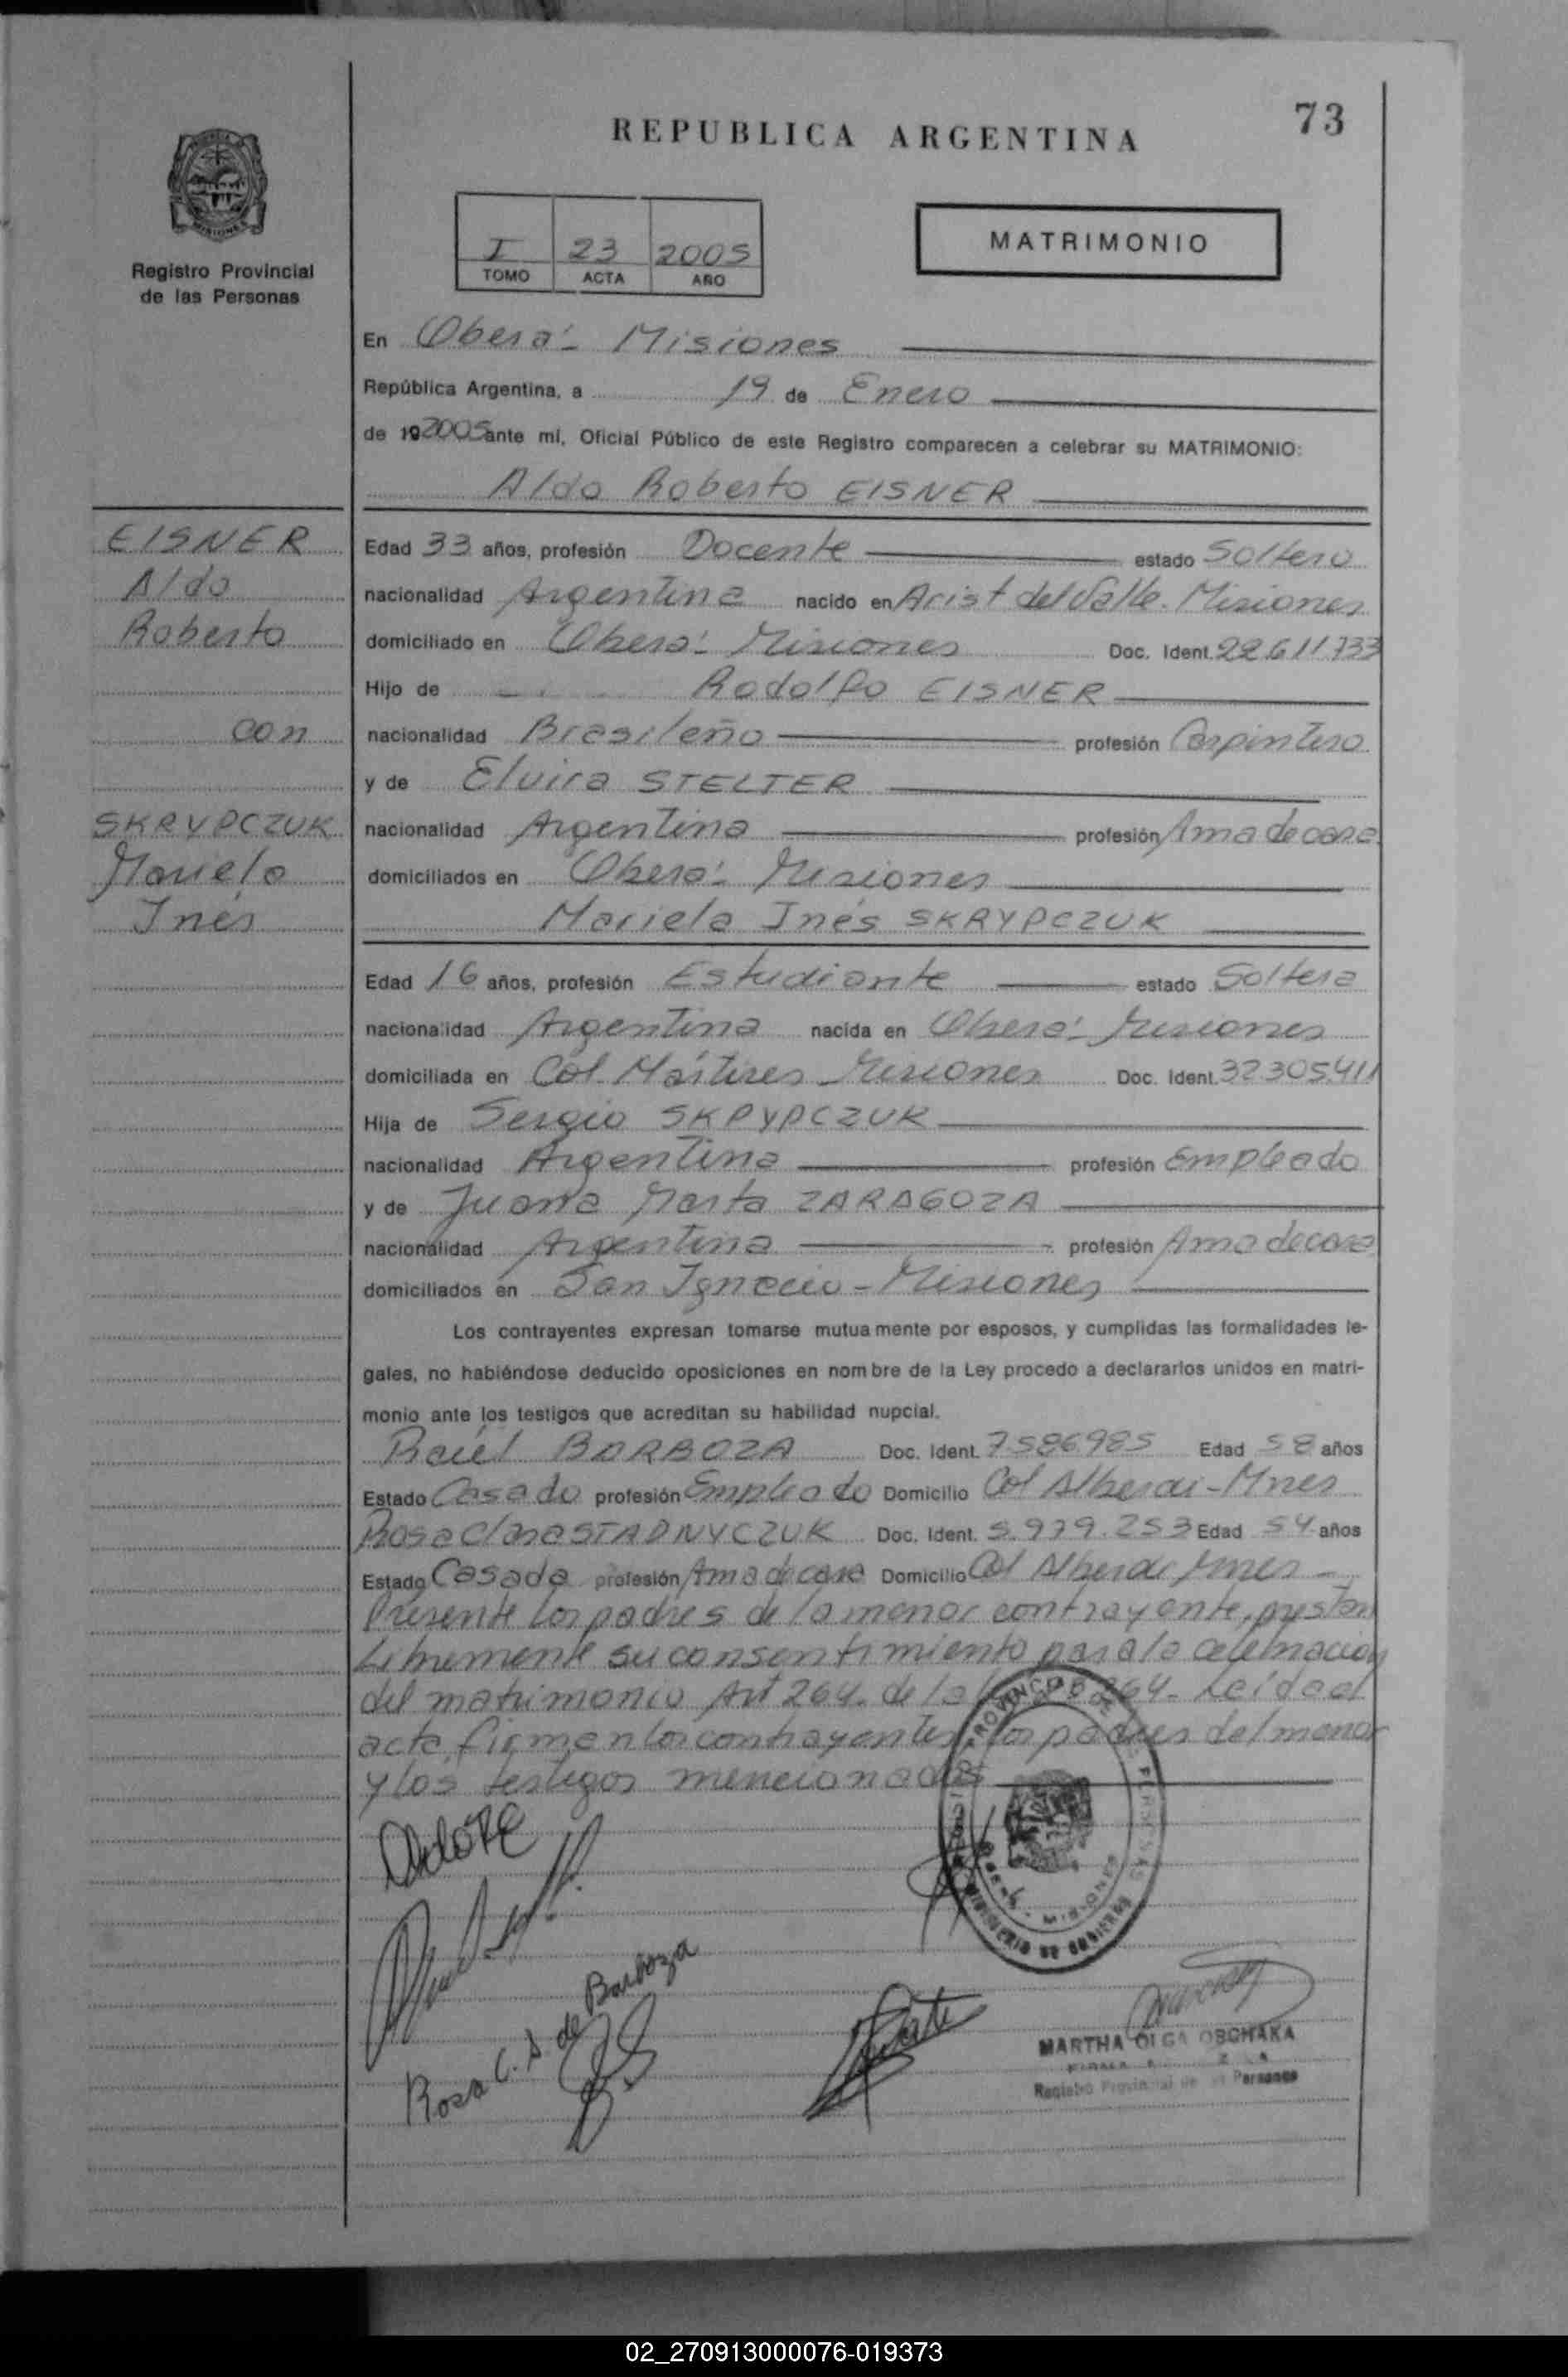 73
REPUBLICA ARGENTINA
Registro Provincial
de las Personas
I 23 2005
TOMO ACTA AÑO
MATRIMONIO
En Oberá - Misiones
República Argentina, a 19 de Enero
de 192005 ante mí, Oficial Público de este Registro comparecen a celebrar su MATRIMONIO:
Aldo Roberto EISNER
EISNER
Aldo
Roberto
con
SKRYPCZUK
Mariela
Inés
Edad 33 años, profesión Docente estado Soltero
nacionalidad Argentina nacido en Arist del Valle. Misiones
domiciliado en Oberá - Misiones Doc. Ident. 22.611.733
Hijo de Rodolfo EISNER
nacionalidad Brasileño profesión Carpintero
y de Elvira STELTER
nacionalidad Argentina profesión Ama de casa
domiciliados en Oberá - Misiones
Mariela Inés SKRYPCZUK
Edad 16 años, profesión Estudiante estado Soltera
nacionalidad Argentina nacida en Oberá - Misiones
domiciliada en Col. Mártires Misiones Doc. Ident. 32.305.411
Hija de Sergio SKPYPCZUK
nacionalidad Argentina profesión Empleado
y de Juana Marta ZARAGOZA
nacionalidad Argentina profesión Ama de casa
domiciliados en San Ignacio - Misiones
Los contrayentes expresan tomarse mutuamente por esposos, y cumplidas las formalidades le-
gales, no habiéndose deducido oposiciones en nombre de la Ley procedo a declararlos unidos en matri-
monio ante los testigos que acreditan su habilidad nupcial.
Raúl BARBOZA Doc. Ident. 7.586.985 Edad 58 años
Estado Casado profesión Empleado Domicilio Col Alberdi - Mnes
Rosa Clara STADNYCZUK Doc. Ident. 5.979.253 Edad 54 años
Estado Casada profesión Ama de casa Domicilio Col Alberdi Mnes -
Presente los padres de la menor contrayente, prestan
libremente su consentimiento para la celebración
del matrimonio Art 264. de la Leída el
acta, firman los contrayentes, los padres del menor
y los testigos mencionados
Rosa C. S. de Barboza
MINISTERIO DE GOBIERNO
MISIONES
MARTHA OLGA OBCHAKA
Registro Provincial de las Personas
02_270913000076-019373